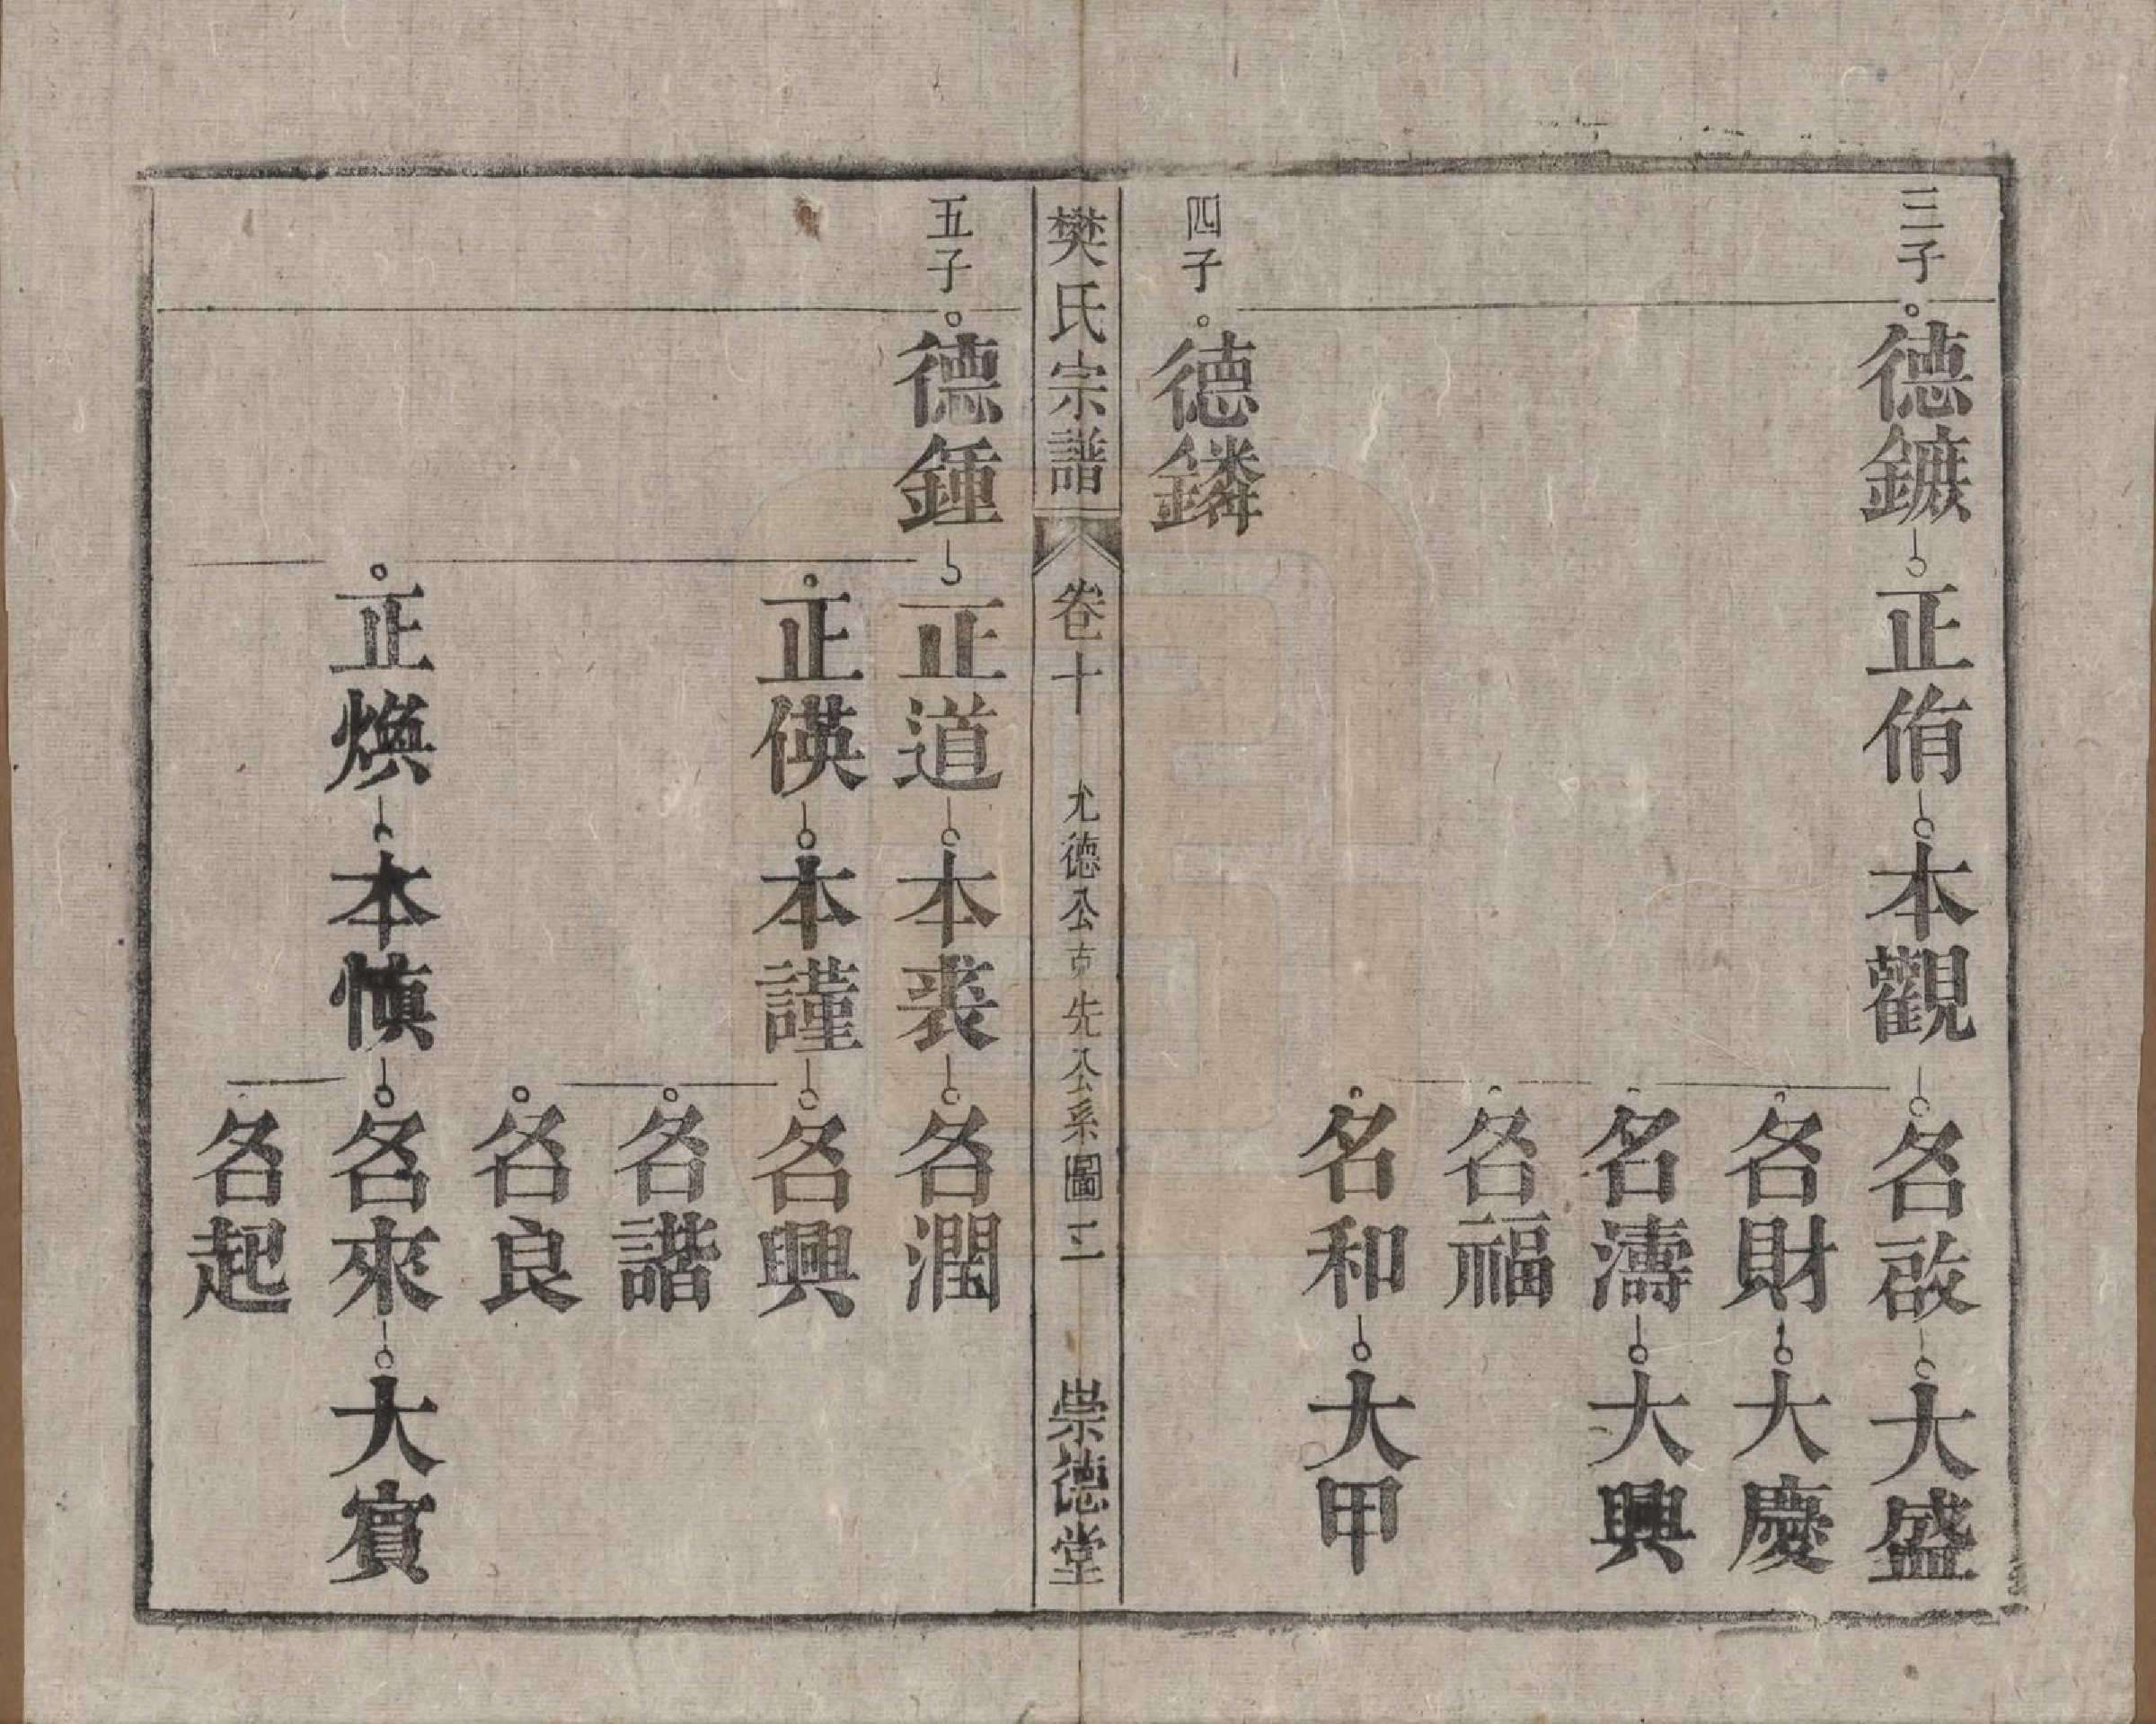 三子
德鏃
正侑
本觀
名啟
大盛
名財
大慶
名濤
大興
名福
名和
大甲
四子
德鏻
樊氏宗譜
卷十
尤德公克先公系圖
崇德堂
五子
德鍾
正道
本裘
名潤
正偀
本謹
名興
名諧
名良
正煥
本慎
名來
大賓
名起